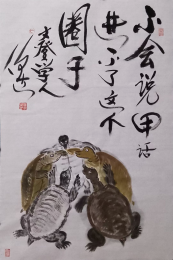 不会说甲话
进不了这个
圈子